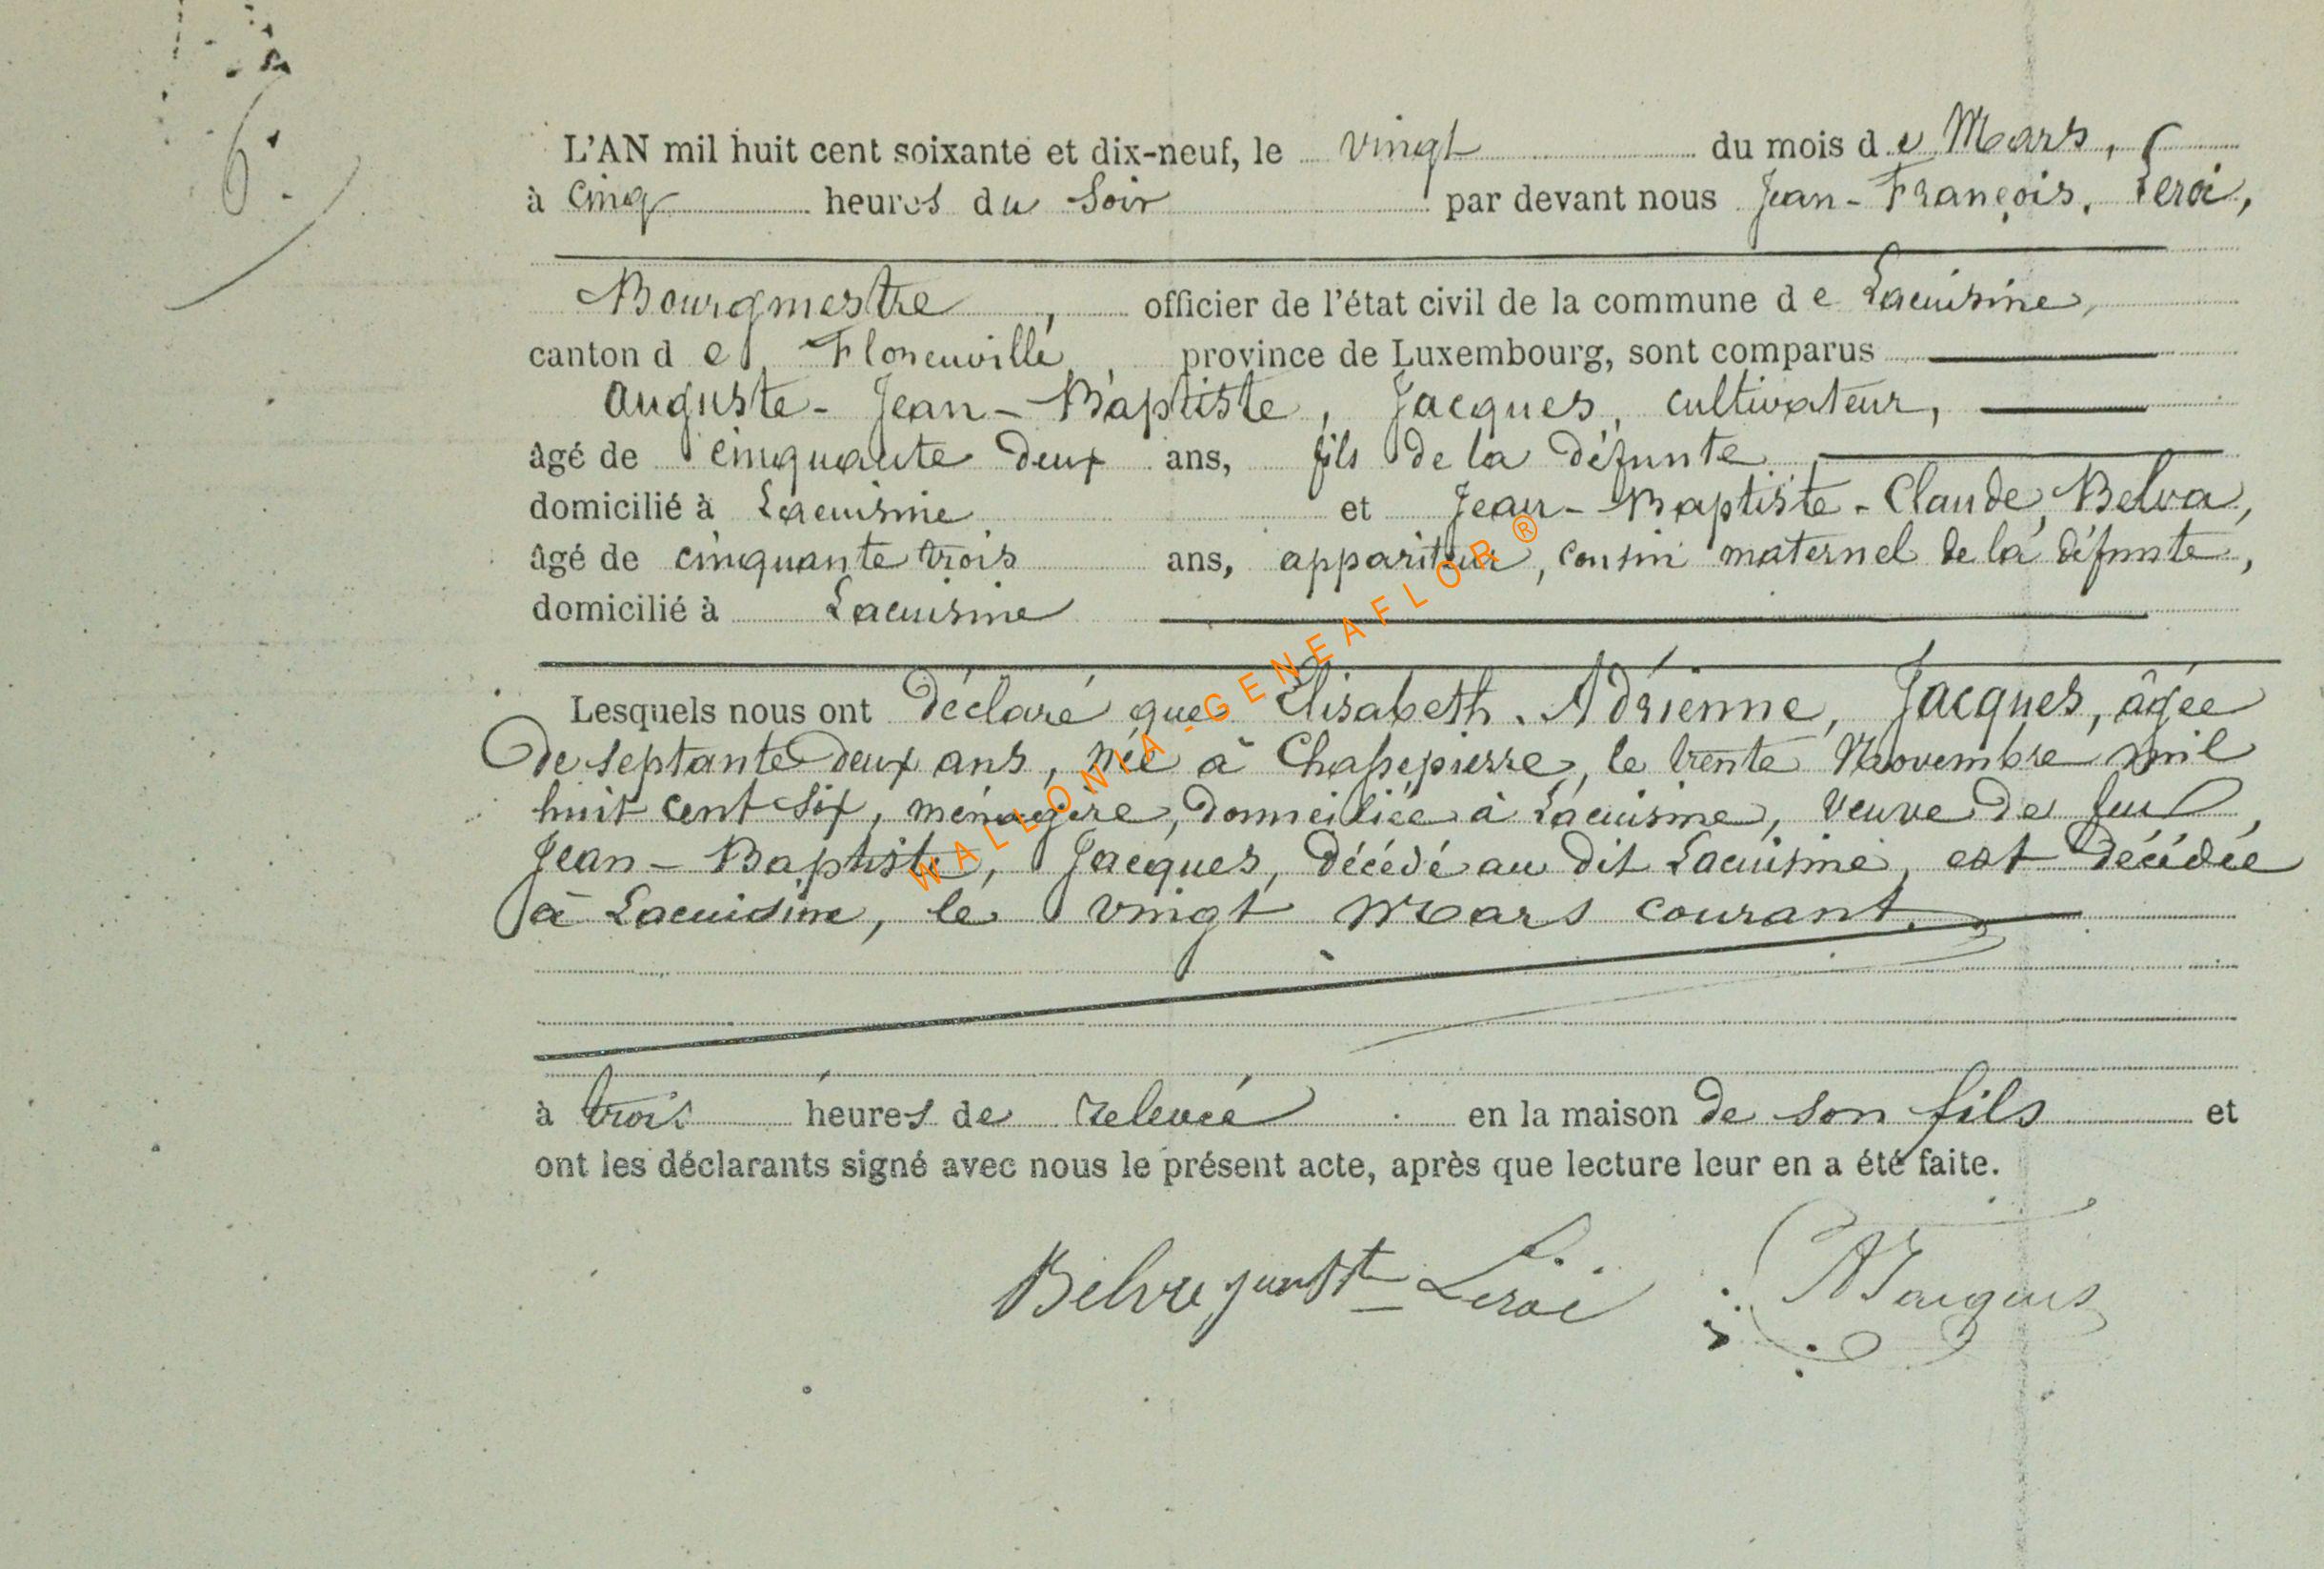 6.
L'AN mil huit cent soixante et dix-neuf, le vingt du mois de Mars,
à cinq heures du soir par devant nous Jean-François, Leroi,
Bourgmestre, officier de l'état civil de la commune de Lacuisine,
canton de Florenville, province de Luxembourg, sont comparus
Auguste-Jean-Baptiste, Jacques, cultivateur,
âgé de cinquante deux ans, fils de la défunte
domicilié à Lacuisine et Jean-Baptiste-Claude, Belva,
âgé de cinquante trois ans, appariteur, cousin maternel de la défunte,
domicilié à Lacuisine
Lesquels nous ont déclaré que Elisabeth-Adrienne, Jacques, âgée
de septante deux ans, née à Chassepierre, le trente Novembre mil
huit cent six, ménagère, domiciliée à Lacuisine, veuve de feu
Jean-Baptiste, Jacques, décédé au dit Lacuisine, est décédée
à Lacuisine, le vingt Mars courant.
à trois heures de relevée en la maison de son fils et
ont les déclarants signé avec nous le présent acte, après que lecture leur en a été faite.
Leroi AJacques
WALLONIA-GENEAFLOR®